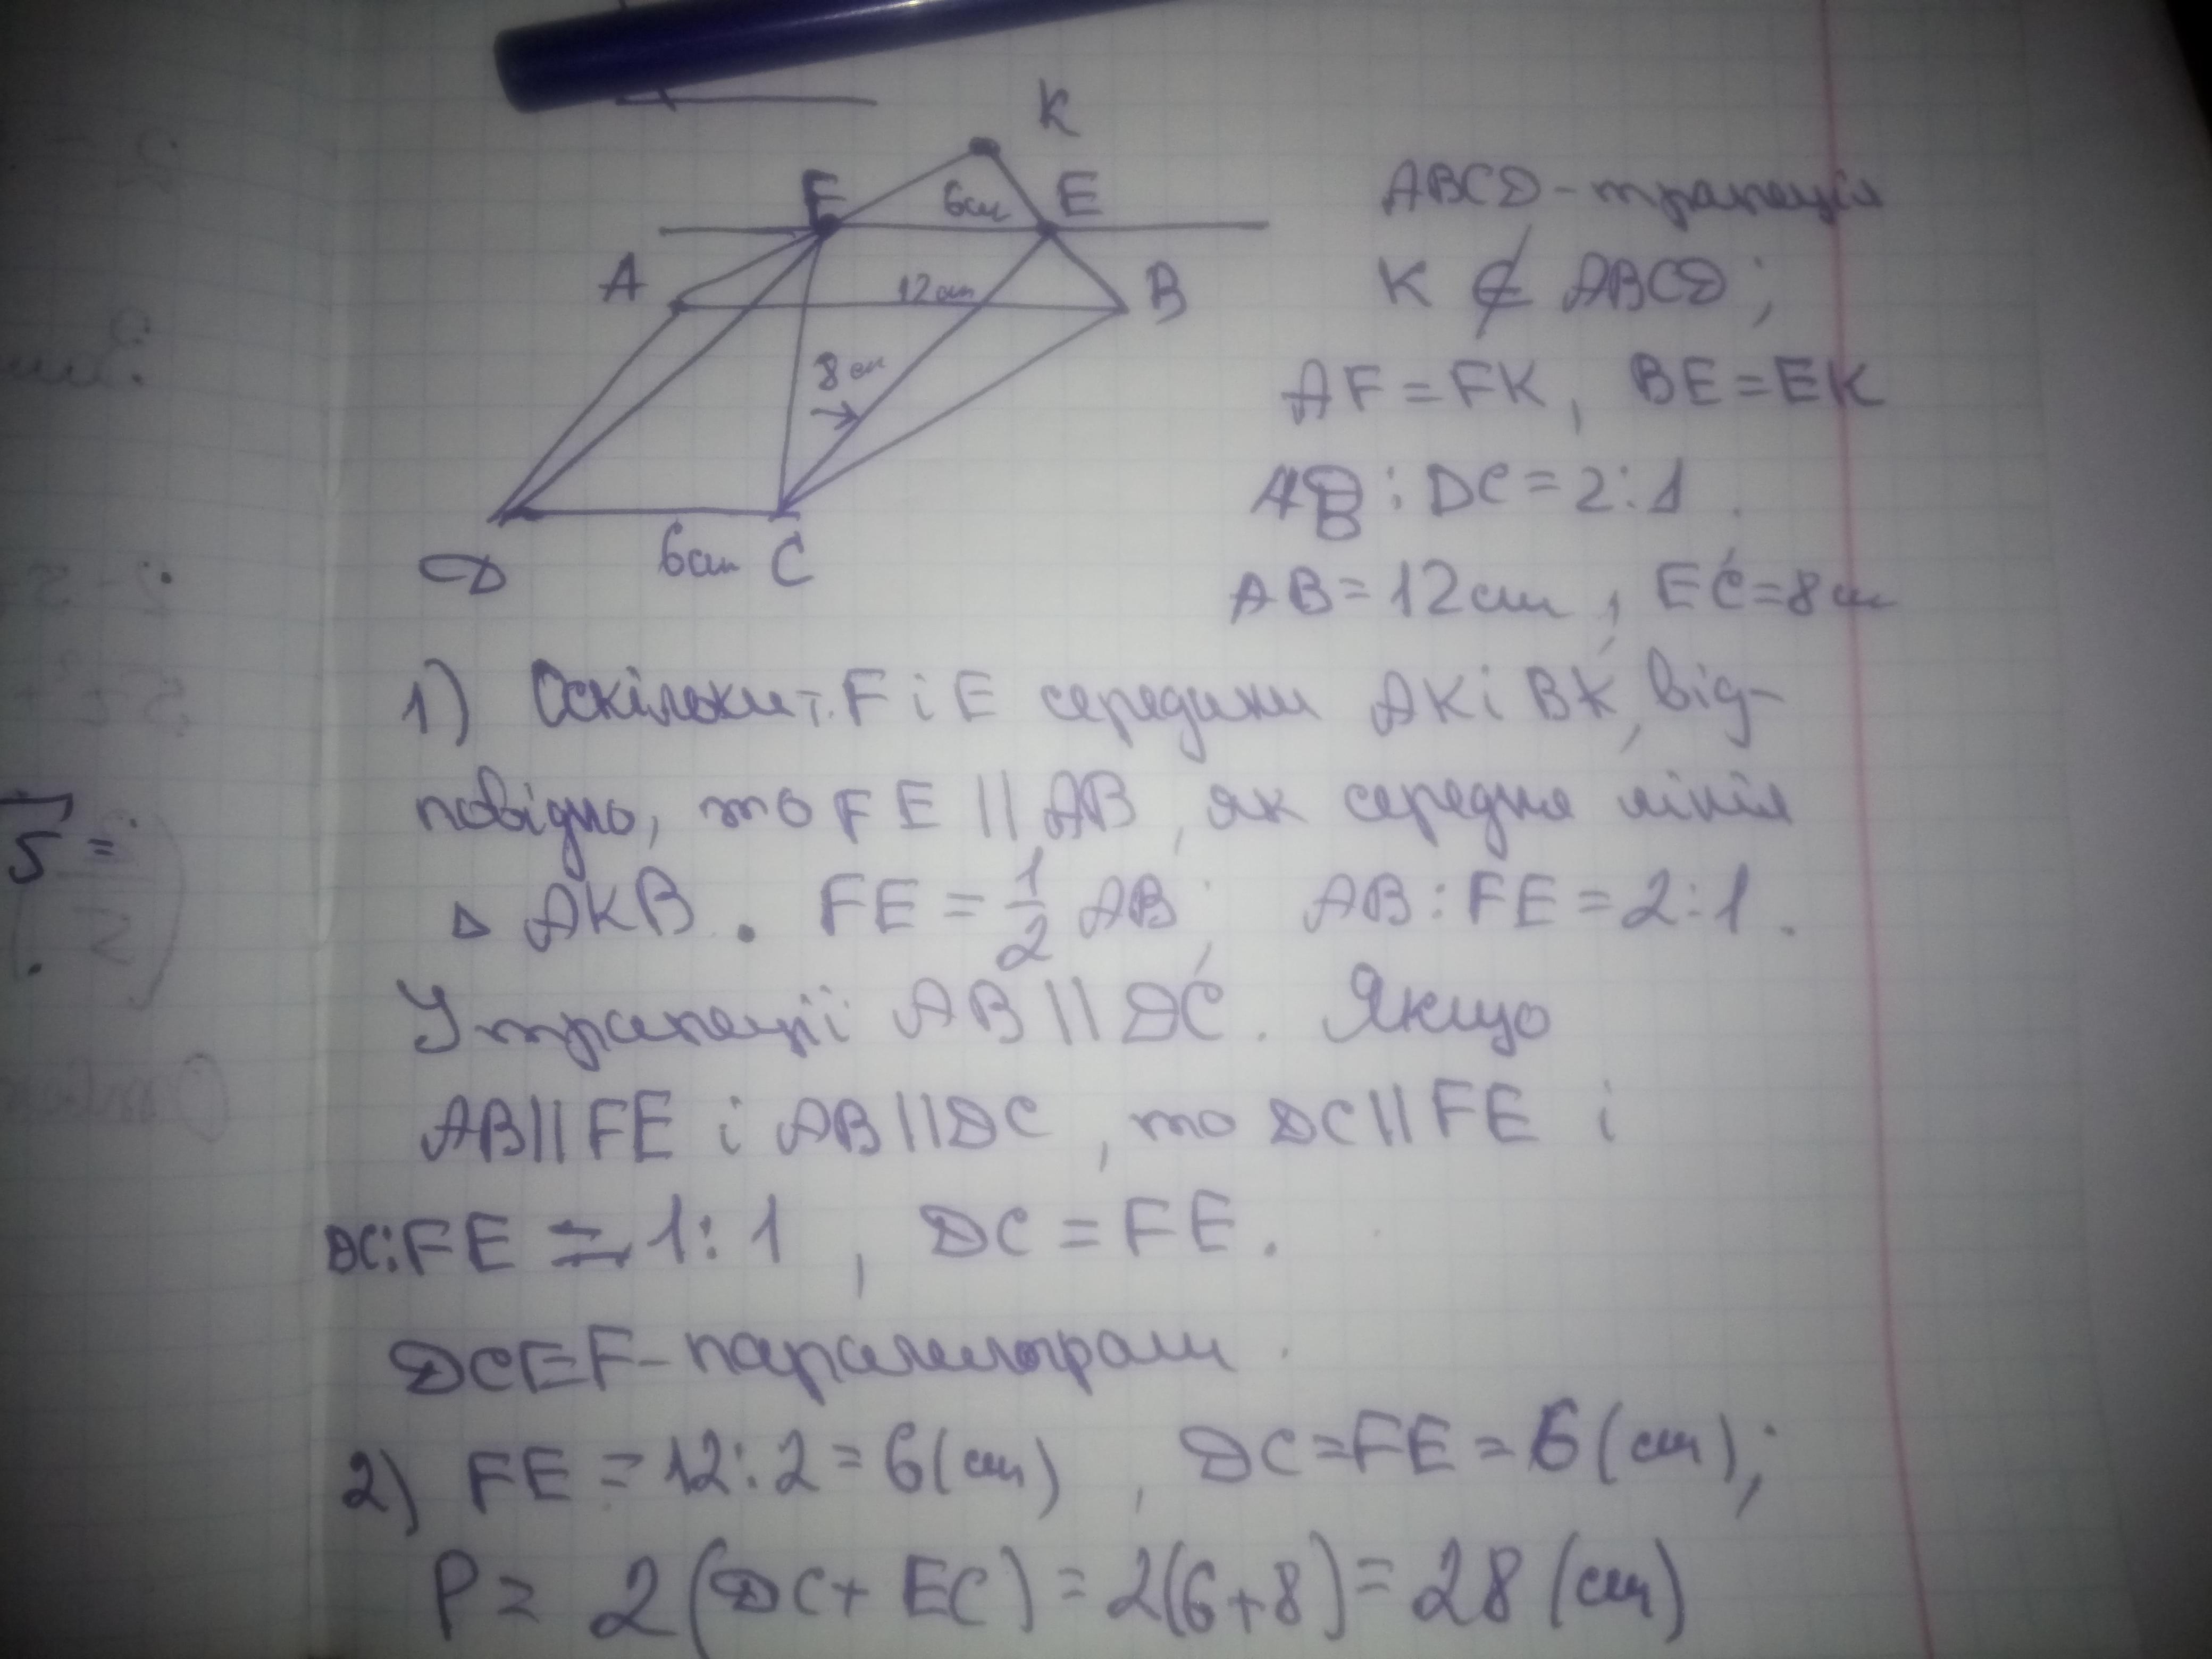 K
F
6см
E
A
12см
B
8см
D
6см
C
ABCD - трапеція
K ∉ ABCD;
AF = FK, BE = EK
AB : DC = 2:1.
AB = 12 см, EC = 8 см
1) Оскільки т. F і E середини AK і BK, від-
повідно, то FE || AB, як середня лінія
△ AKB. FE = 1/2 AB; AB : FE = 2:1.
У трапеції AB || DC. Якщо
AB || FE і AB || DC, то DC || FE і
DC : FE = 1:1, DC = FE.
DCEF - паралелограм.
2) FE = 12:2 = 6 (см), DC = FE = 6 (см);
P = 2(DC + EC) = 2(6+8) = 28 (см)
5 =